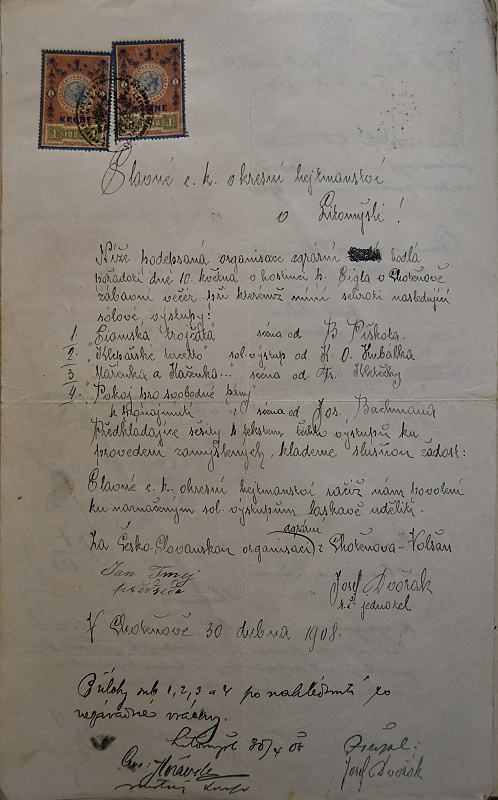 1 1
KRONE KRONE
1 1898 1
Slavné c. k. okresní hejtmanství
v Litomyšli!
Níže podepsaná organisace agrární hodlá
pořádati dne 10. května v hostinci p. Cigla v Chotěnově
zábavní večer při kterémž míní sehráti následující
sólové výstupy:
1. "Siamská trojčata" scéna od B. Piškota.
2. "Klepařské tercetto" sol. výstup od K. O. Hubálka
3. Mařenka a Kačenka..." scéna od Fr. Kletečky
4. "Pokoj pro svobodné pány"
k pronajmutí scéna od Jos. Bachmana
Předkládajíce sešity s textem těchto výstupů ku
provedení zamýšlených, klademe slušnou žádost:
Slavné c. k. okresní hejtmanství račiž nám povolení
ku naznačeným sol. výstupům laskavě uděliti.
agrární
Za Česko-Slovanskou organisaci z Chotěnova-Volšan
Jan Tmej
předseda
Josef Dvořák
jednatel
V Chotěnově 30 dubna 1908.
Přílohy sub 1, 2, 3 a 4 po nahlédnutí co
nezávadné vráceny.
Litomyšl 30/4 08
Převzal:
Josef Dvořák